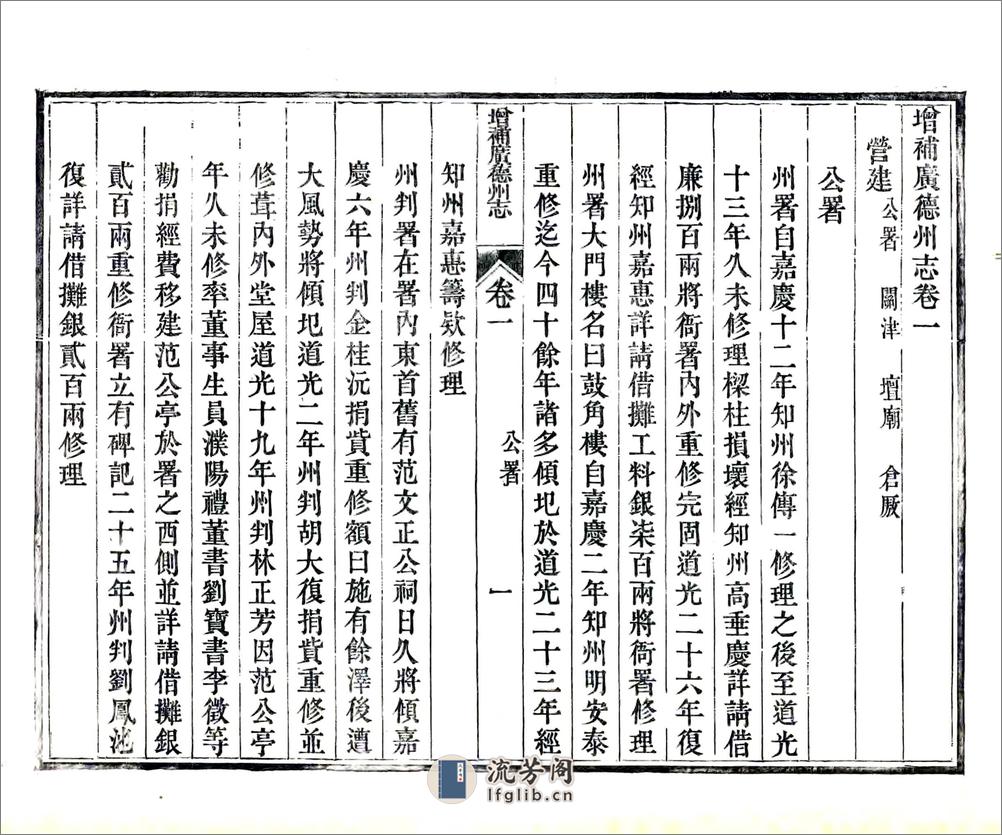 增補廣德州志卷一
營建 公署 關津 壇廟 倉厫
公署
州署自嘉慶十二年知州徐傳一修理之後至道光
十三年久未修理樑柱損壞經知州高垂慶詳請借
廉捌百兩將衙署內外重修完固道光二十六年復
經知州嘉惠詳請借攤工料銀柒百兩將衙署修理
州署大門樓名曰鼓角樓自嘉慶二年知州明安泰
重修迄今四十餘年諸多傾圮於道光二十三年經
增補廣德州志 卷一 公署 一
知州嘉惠籌欵修理
州判署在署內東首舊有范文正公祠日久將傾嘉
慶六年州判金桂沅捐貲重修額曰施有餘澤後遭
大風勢將傾圮道光二年州判胡大復捐貲重修並
修葺內外堂屋道光十九年州判林正芳因范公亭
年久未修率董事生員濮陽禮董書劉寶書李徵等
勸捐經費移建范公亭於署之西側並詳請借攤銀
貳百兩重修衙署立有碑記二十五年州判劉鳳池
復詳請借攤銀貳百兩修理
流芳阁
lfglib.cn